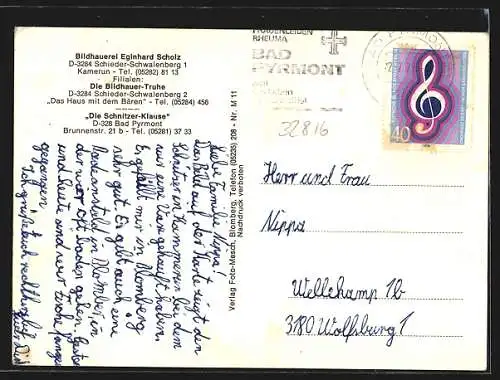 Bildhauerei Eginhard Scholz
D-3284 Schieder-Schwalenberg 1
Kamerun - Tel. (05282) 81 13
Filialen:
Die Bildhauer-Truhe
D-3284 Schieder-Schwalenberg 2
„Das Haus mit dem Bären" - Tel. (05284) 456
„Die Schnitzer-Klause"
D-328 Bad Pyrmont
Brunnenstr. 21 b - Tel. (05281) 37 33
FRAUENLEIDEN
RHEUMA
BAD
PYRMONT
32816
40
Liebe Familie Nippa!
Das Bild auf der Karte zeigt den
Schnitzer in Kammerun bei dem
wir eine Vase gekauft haben.
Es gefällt mir in Blomberg
sehr gut. Es gibt auch eine
Badeanstalt in Blomberg in
der wir oft baden gehen, gestern
und heute sind wir
gegangen.
Ich grüße Euch recht herzlich
Verlag Foto-Mesch, Blomberg, Telefon (05235) 208 - Nr. M 11
Nachdruck verboten
Herr und Frau
Nippa
Wellekamp 1b
3180 Wolfsburg 1